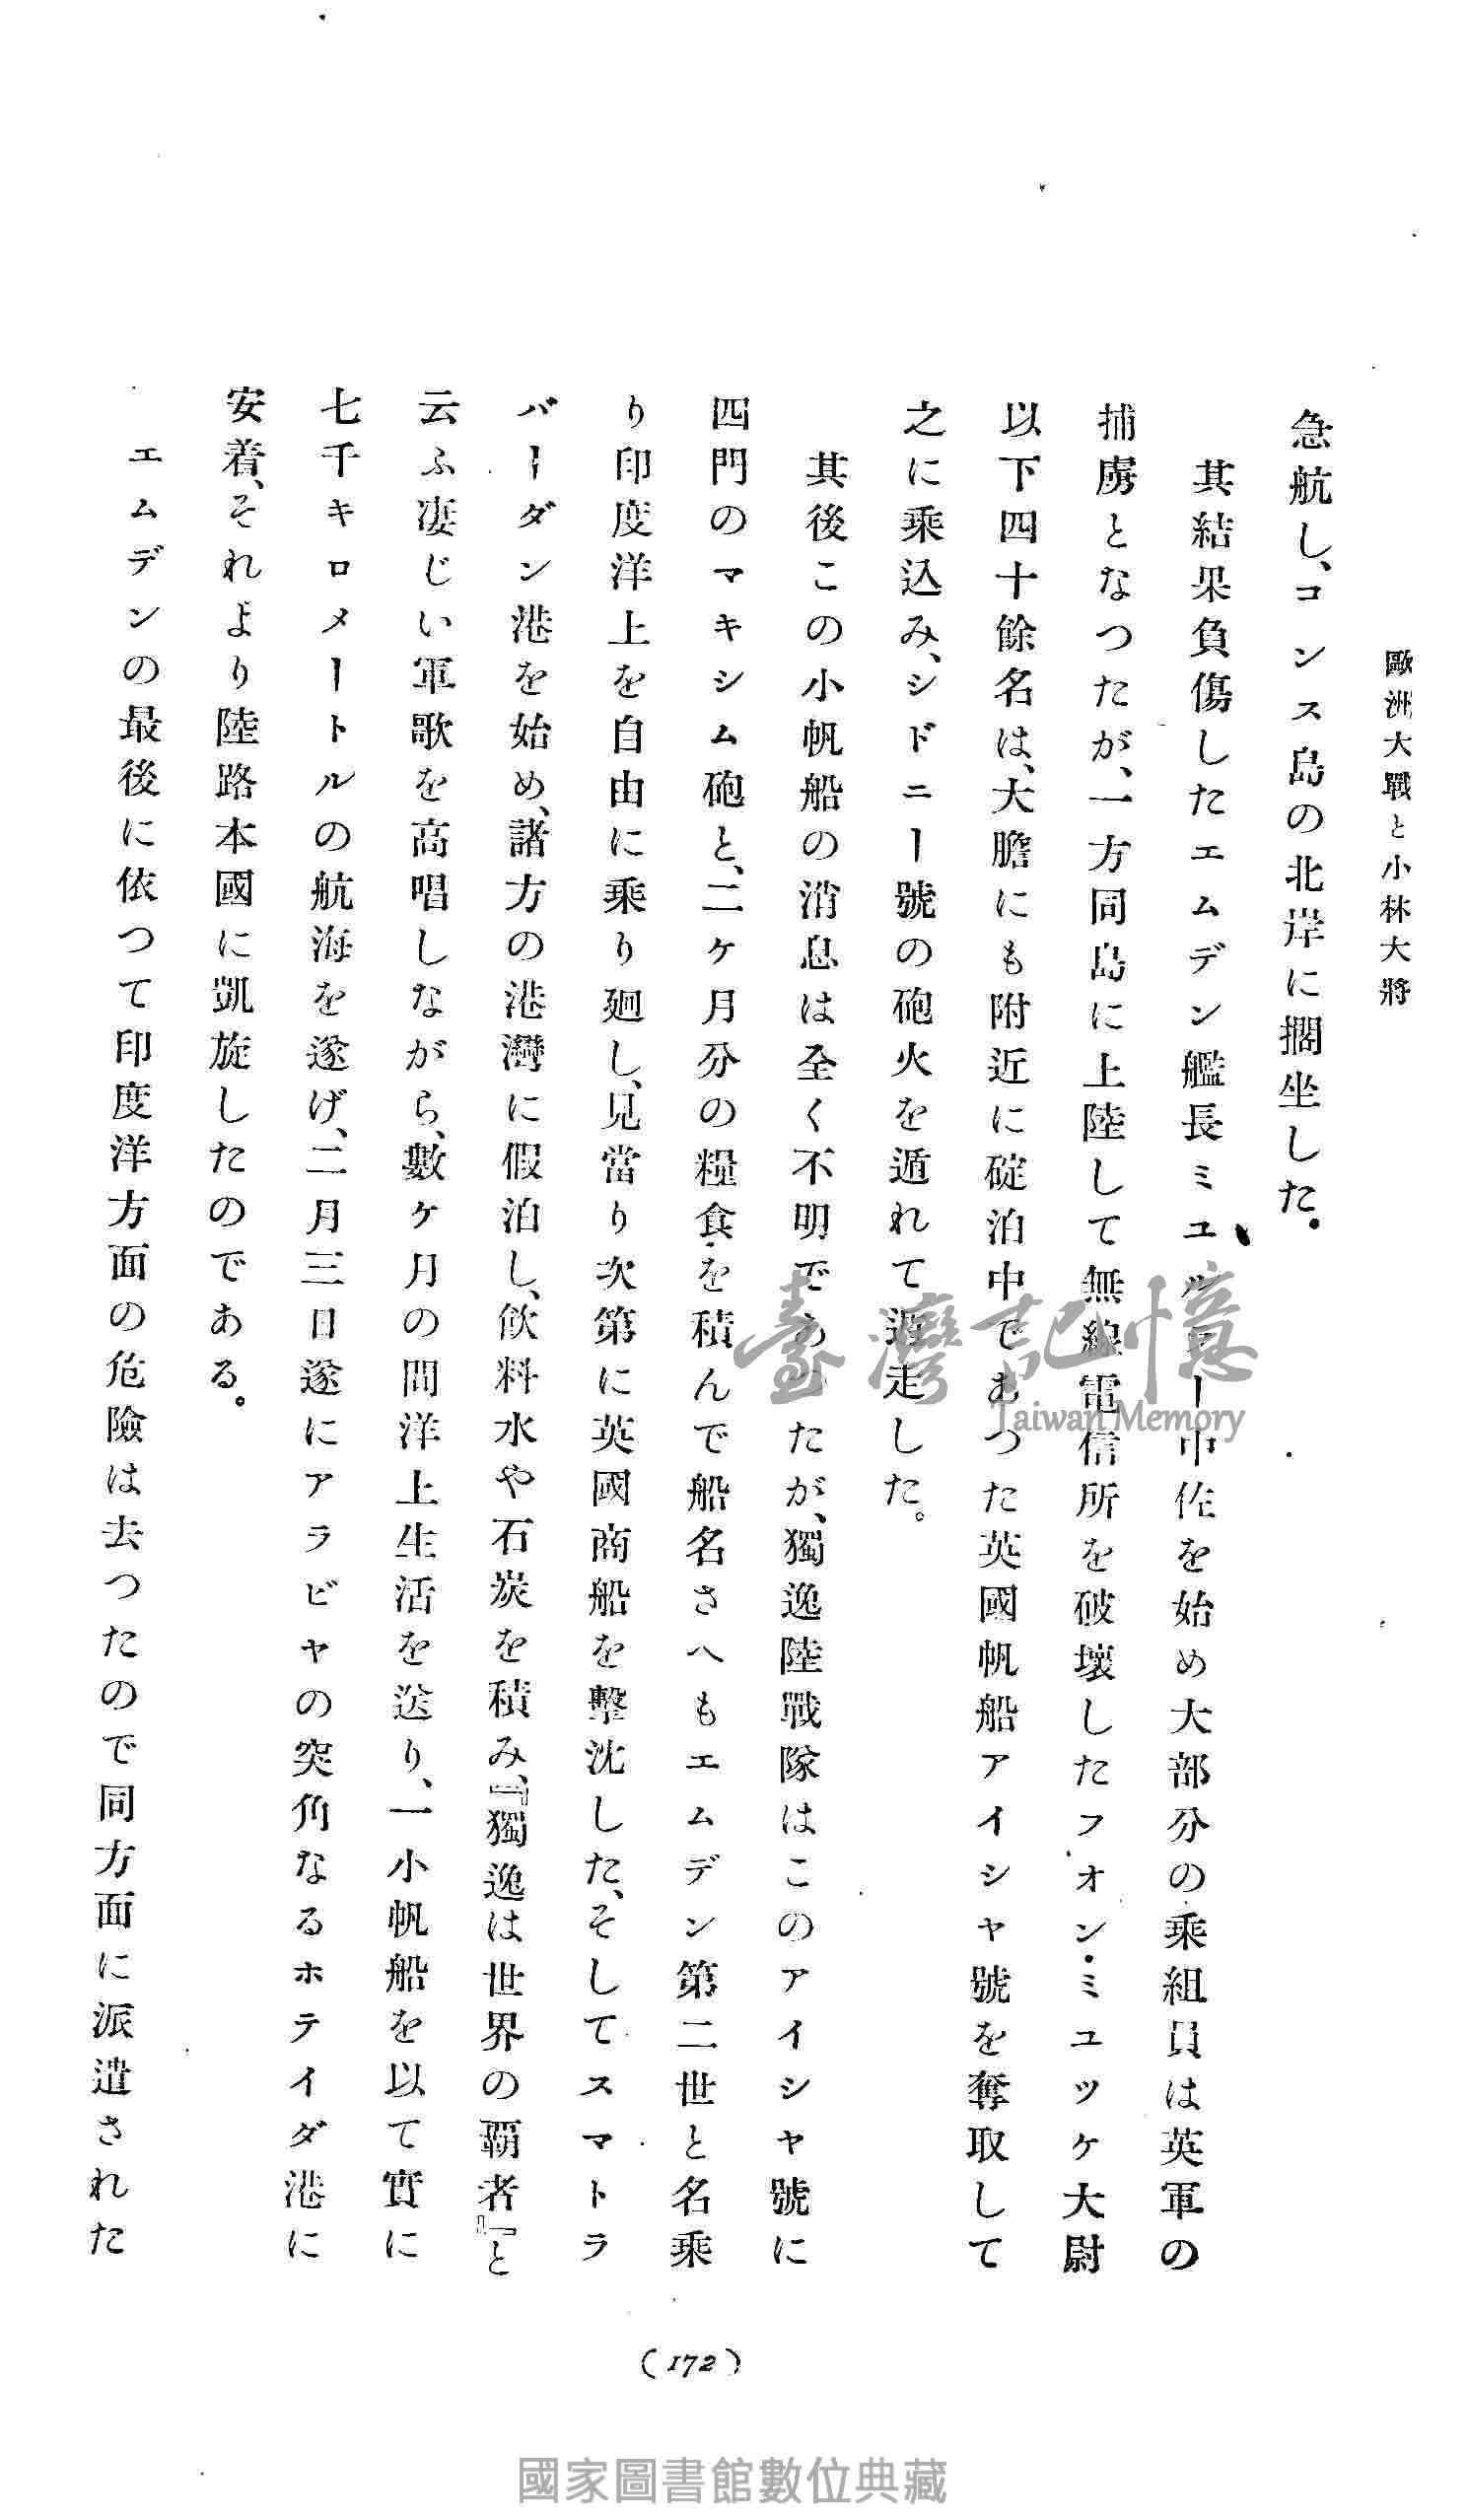 歐洲大戰と小林大將
急航し、コンス島の北岸に擱坐した。
其結果負傷したエムデン艦長ミユラー中佐を始め大部分の乘組員は英軍の
捕虜となつたが、一方同島に上陸して無線電信所を破壞したフオン・ミユツケ大尉
以下四十餘名は、大膽にも附近に碇泊中であつた英國帆船アイシャ號を奪取して
之に乘込み、シドニー號の砲火を遁れて遁走した。
其後この小帆船の消息は全く不明であつたが、獨逸陸戰隊はこのアイシャ號に
四門のマキシム砲と、二ケ月分の糧食を積んで船名さへもエムデン第二世と名乘
り印度洋上を自由に乘り廻し、見當り次第に英國商船を擊沈した、そしてスマトラ
バーダン港を始め、諸方の港灣に假泊し、飮料水や石炭を積み、『獨逸は世界の覇者』と
云ふ凄じい軍歌を高唱しながら、數ケ月の間洋上生活を送り、一小帆船を以て實に
七千キロメートルの航海を遂げ、二月三日遂にアラビヤの突角なるホテイダ港に
安着、それより陸路本國に凱旋したのである。
エムデンの最後に依つて印度洋方面の危險は去つたので同方面に派遣された
(172)
臺灣記憶
Taiwan Memory
國家圖書館數位典藏